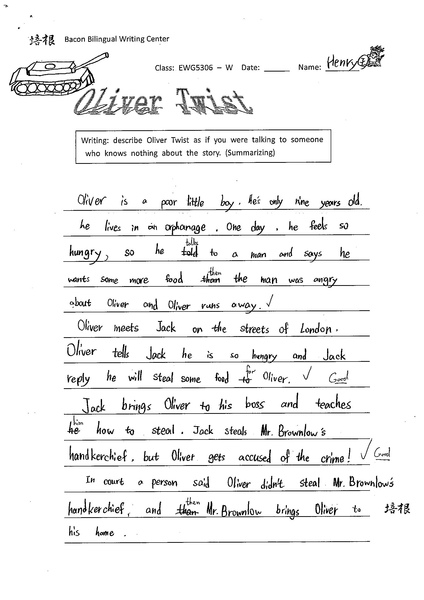 培根 Bacon Bilingual Writing Center
Class: EWG5306 – W Date: _____ Name: Henry
Oliver Twist
Writing: describe Oliver Twist as if you were talking to someone
who knows nothing about the story. (Summarizing)
Oliver is a poor little boy. He's only nine years old.
he lives in an orphanage. One day, he feels so
talks
hungry, so he told to a man and says he
then
wants some more food than the man was angry
about Oliver and Oliver runs away. ✓
Oliver meets Jack on the streets of London.
Oliver tells Jack he is so hungry and Jack
for
reply he will steal some food to Oliver. ✓ Good
Jack brings Oliver to his boss and teaches
him
he how to steal. Jack steals Mr. Brownlow's
handkerchief, but Oliver gets accused of the crime! ✓ Good
In court a person said Oliver didn't steal Mr. Brownlow's
then
handkerchief, and than Mr. Brownlow brings Oliver to 培根
his home.